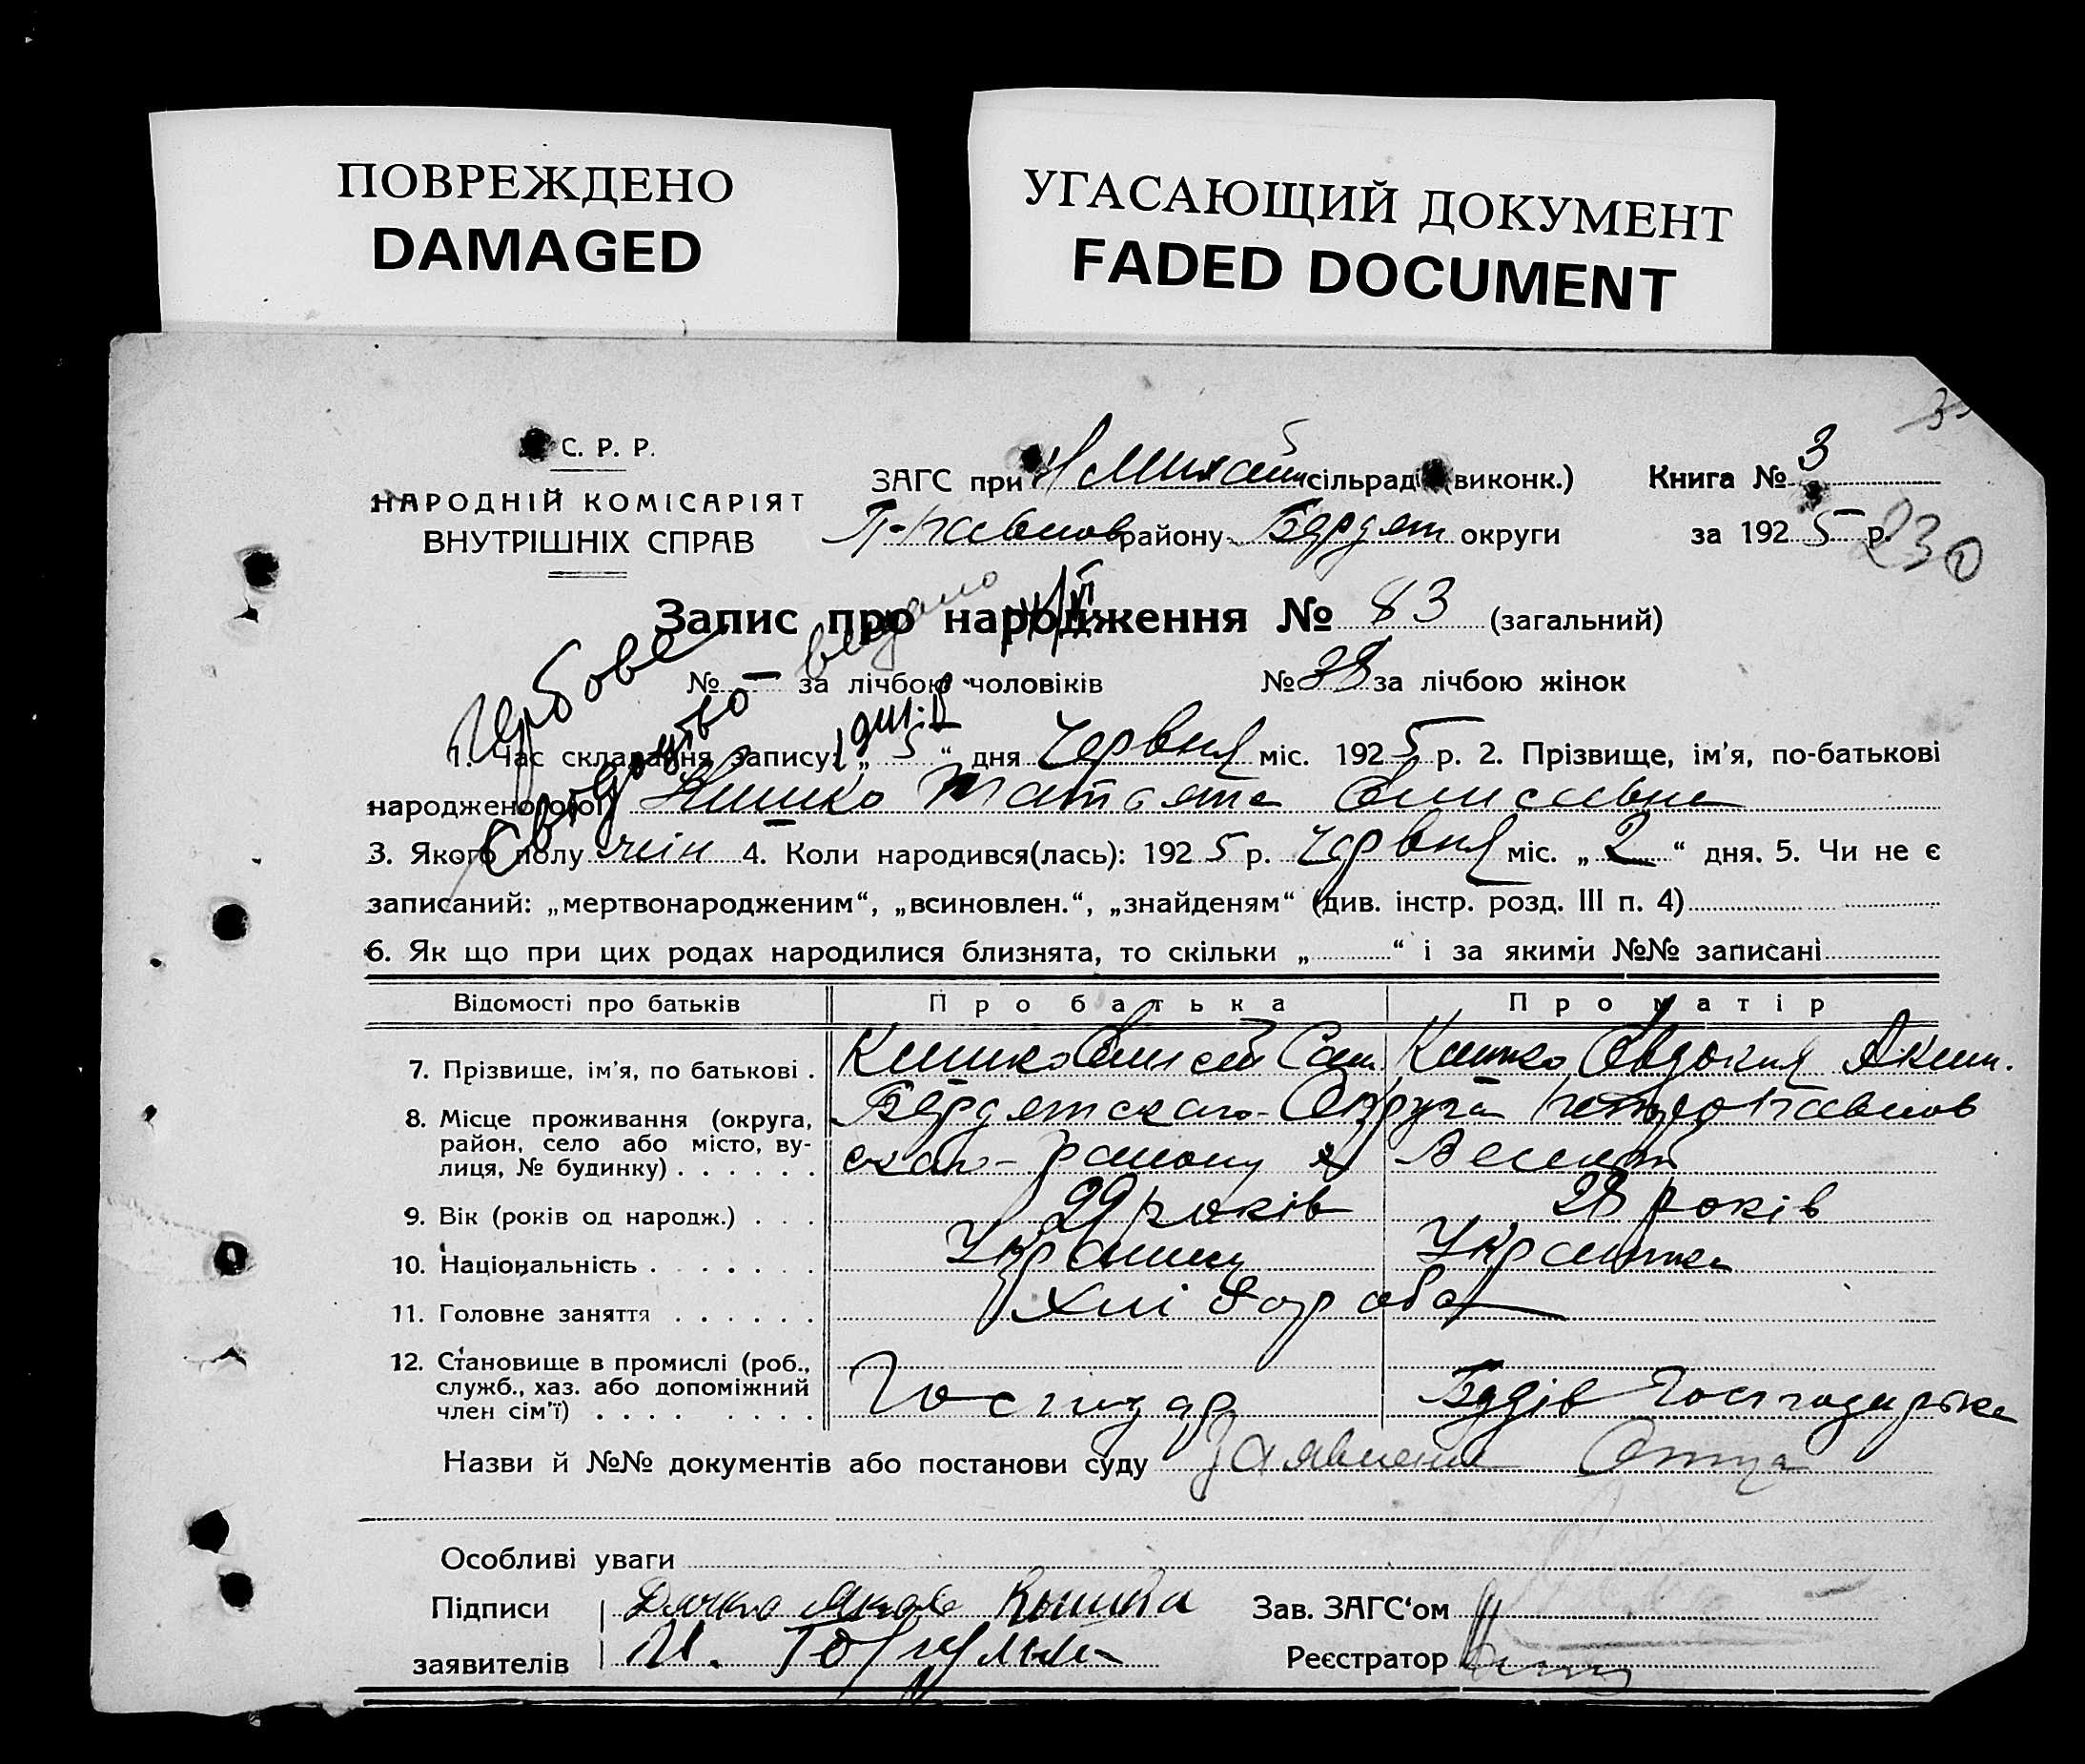 ПОВРЕЖДЕНО
DAMAGED
УГАСАЮЩИЙ ДОКУМЕНТ
FADED DOCUMENT
С. Р. Р.
НАРОДНІЙ КОМІСАРІЯТ
ВНУТРІШНІХ СПРАВ
ЗАГС при сільрад (виконк.) Книга № 3
району Бердян округи за 1925 р.
230
Запис про народження № 83 (загальний)
№ — за лічбою чоловіків № 38 за лічбою жінок
Первове
видано
свидоцтво
1. Час складання запису: „5“ дня Червня міс. 1925 р. 2. Прізвище, ім'я, по-батькові
народженого(ої) Кишко Татьяна Елисивна
3. Якого полу жін 4. Коли народився(лась): 1925 р. Червня міс. „2“ дня. 5. Чи не є
записаний: „мертвонародженим“, „всиновлен.“, „знайденям“ (див. інстр. розд. III п. 4)
6. Як що при цих родах народилися близнята, то скільки „ “ і за якими №№ записані
Відомості про батьків Про батька Про матір
7. Прізвище, ім'я, по батькові . Кишко Елисей Сам. Кишко Евдокия Аким.
8. Місце проживання (округа, Бердянскаго Округа Петропавлов
район, село або місто, ву-
лиця, № будинку) . . . . . . скаго району
9. Вік (років од народж.) . . . 29 років 28 років
10. Національність . . . . . . . Українец Українка
11. Головне заняття . . . . . . Хлібороб
12. Становище в промислі (роб.,
служб., хаз. або допоміжний
член сім'ї) . . . . . . . . Господар
Назви й №№ документів або постанови суду Заявление Отца
Особливі уваги
Підписи Кишка Зав. ЗАГС'ом
заявителів И. Реєстратор